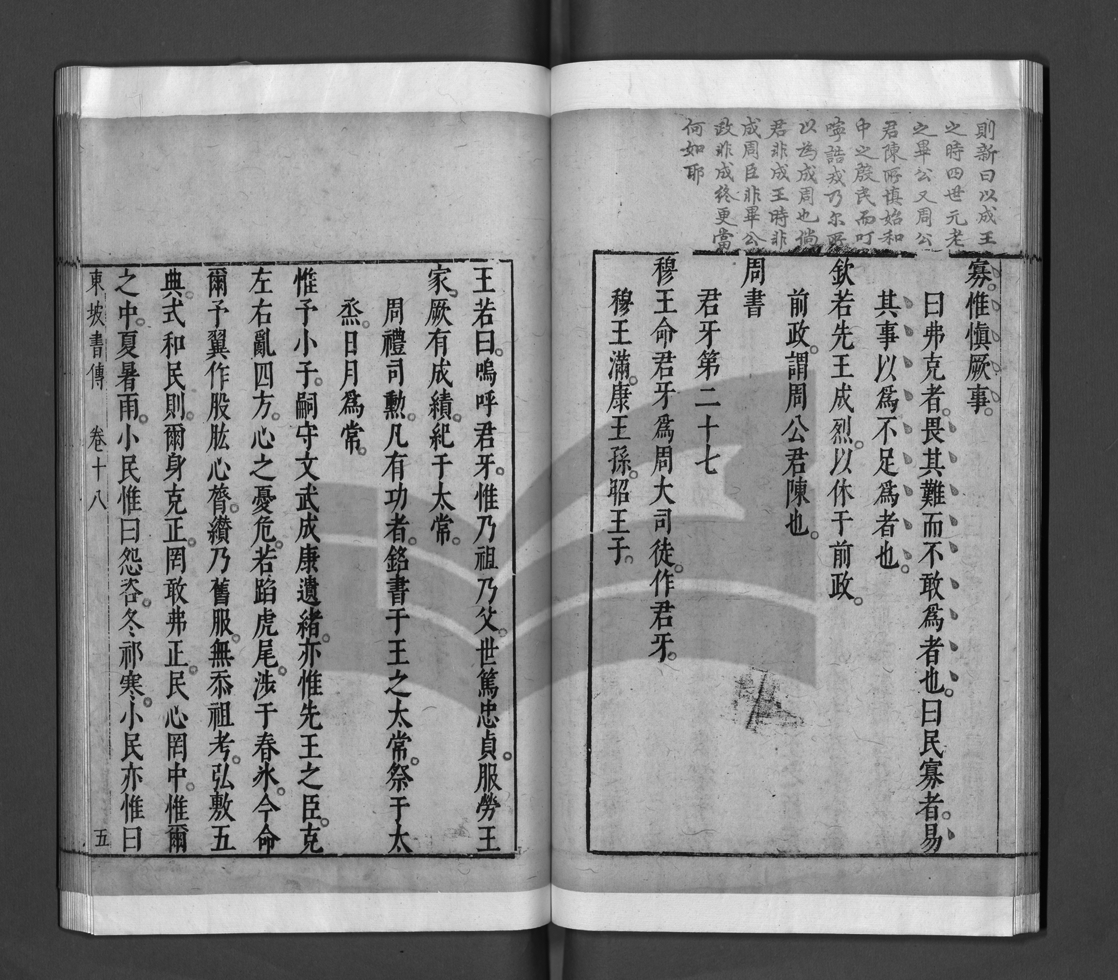 則新曰以成王
之時四世元老
之畢公又周公
君陳所慎始和
中之殷民而叮
嚀誥戒乃尔所
以為成周也倘
君非成王時非
成周臣非畢公
政非成終更當
何如耶
寡。惟愼厥事。
曰弗克者。畏其難而不敢爲者也。曰民寡者。易
其事以爲不足爲者也。
欽若先王成烈。以休于前政。
前政。謂周公君陳也。
周書
君牙第二十七
穆王命君牙爲周大司徒。作君牙。
穆王滿。康王孫。昭王子。
王若曰。嗚呼君牙。惟乃祖乃父。世篤忠貞。服勞王
家。厥有成績。紀于太常。
周禮司勳。凡有功者。銘書于王之太常。祭于太
烝。日月爲常。
惟予小子。嗣守文武成康遺緒。亦惟先王之臣。克
左右亂四方。心之憂危。若蹈虎尾。涉于春氷。今命
爾予翼。作股肱心膂。纘乃舊服。無忝祖考。弘敷五
典。式和民則。爾身克正。罔敢弗正。民心罔中。惟爾
之中。夏暑雨。小民惟曰怨咨。冬祁寒。小民亦惟曰
東坡書傳 卷十八 五